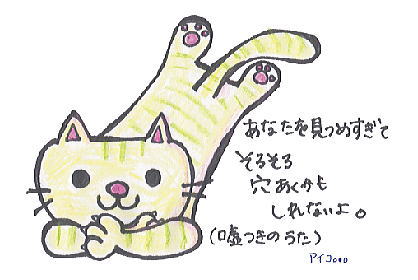 あなたを見つめすぎて
そろそろ
穴あくかも
しれないよ。
(嘘つきのうた)
アイコ